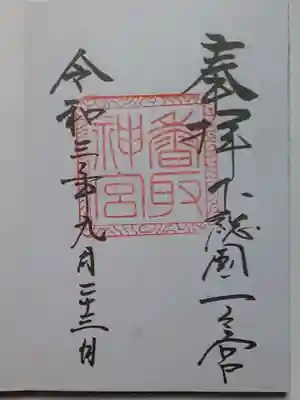 奉拝 下総國一之宮
香取神宮
令和三年九月二十三日